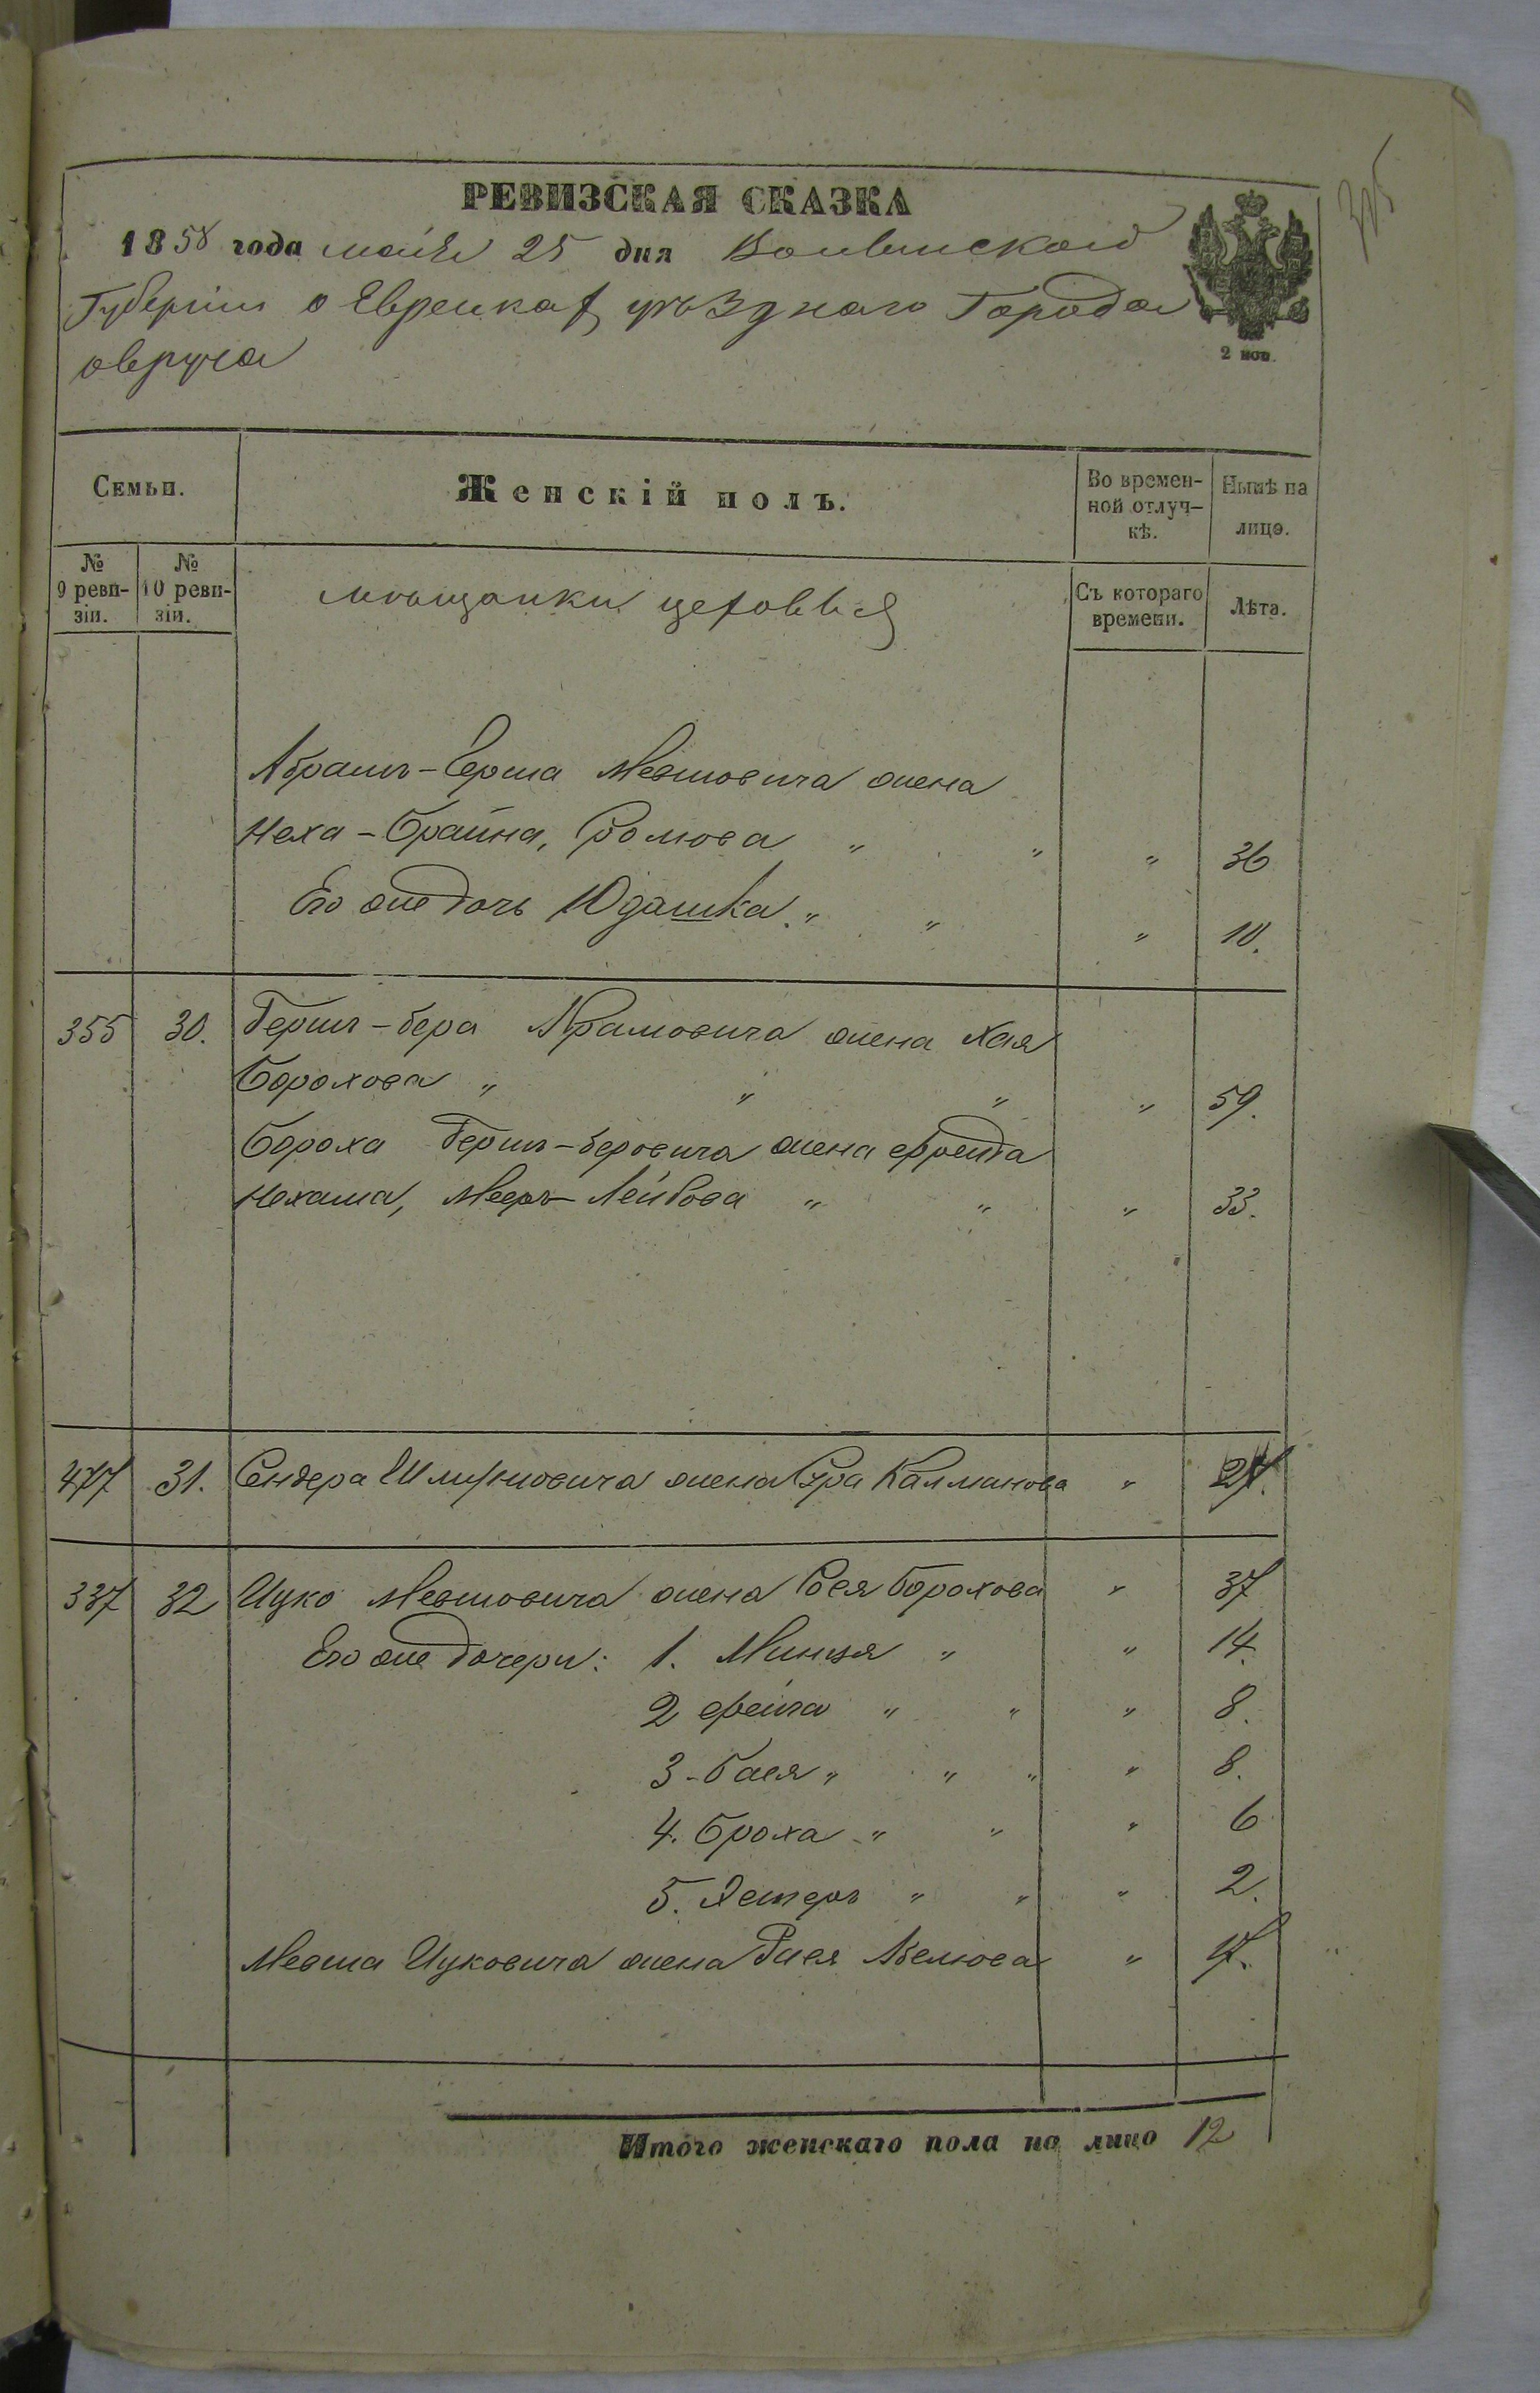 РЕВИЗСКАЯ СКАЗКА
1858 года мая 25 дня Волынской
Губернии о Еврейкахъ уѣзднаго Города
овруча
2 коп.
Семьи.
Женскій полъ.
Во времен-
ной отлуч-
кѣ.
Нынѣ на
лицо.
№
9 реви-
зіи.
№
10 реви-
зіи.
мѣщанки цеховыя
Съ котораго
времени.
Лѣта.
Абрамъ-Герша Мевшовича жена
Неха-Брайна, " " " 36
Его же дочь Юдашка " " " 10.
355 30. Гершъ-бера Абрамовича жена Хая
Борохова " " " " 59.
Бороха Гершъ-беровича жена Фрейда
Нехама, Мееръ-Лейбова " " " 33.
477 31. Сендера Шлиомовича жена Сура Калманова "
337 32 Ицко Мевшовича жена Сося Борохова " 37
Его же дочери: 1. Минця " " 14.
2 Фейга " " " 8.
3. Бася " " " " 8.
4. Броха " " " 6
5. Эстеръ " " " 2.
Мевша Ицковича жена Рися Абелиова " 17.
Итого женскаго пола на лицо 12